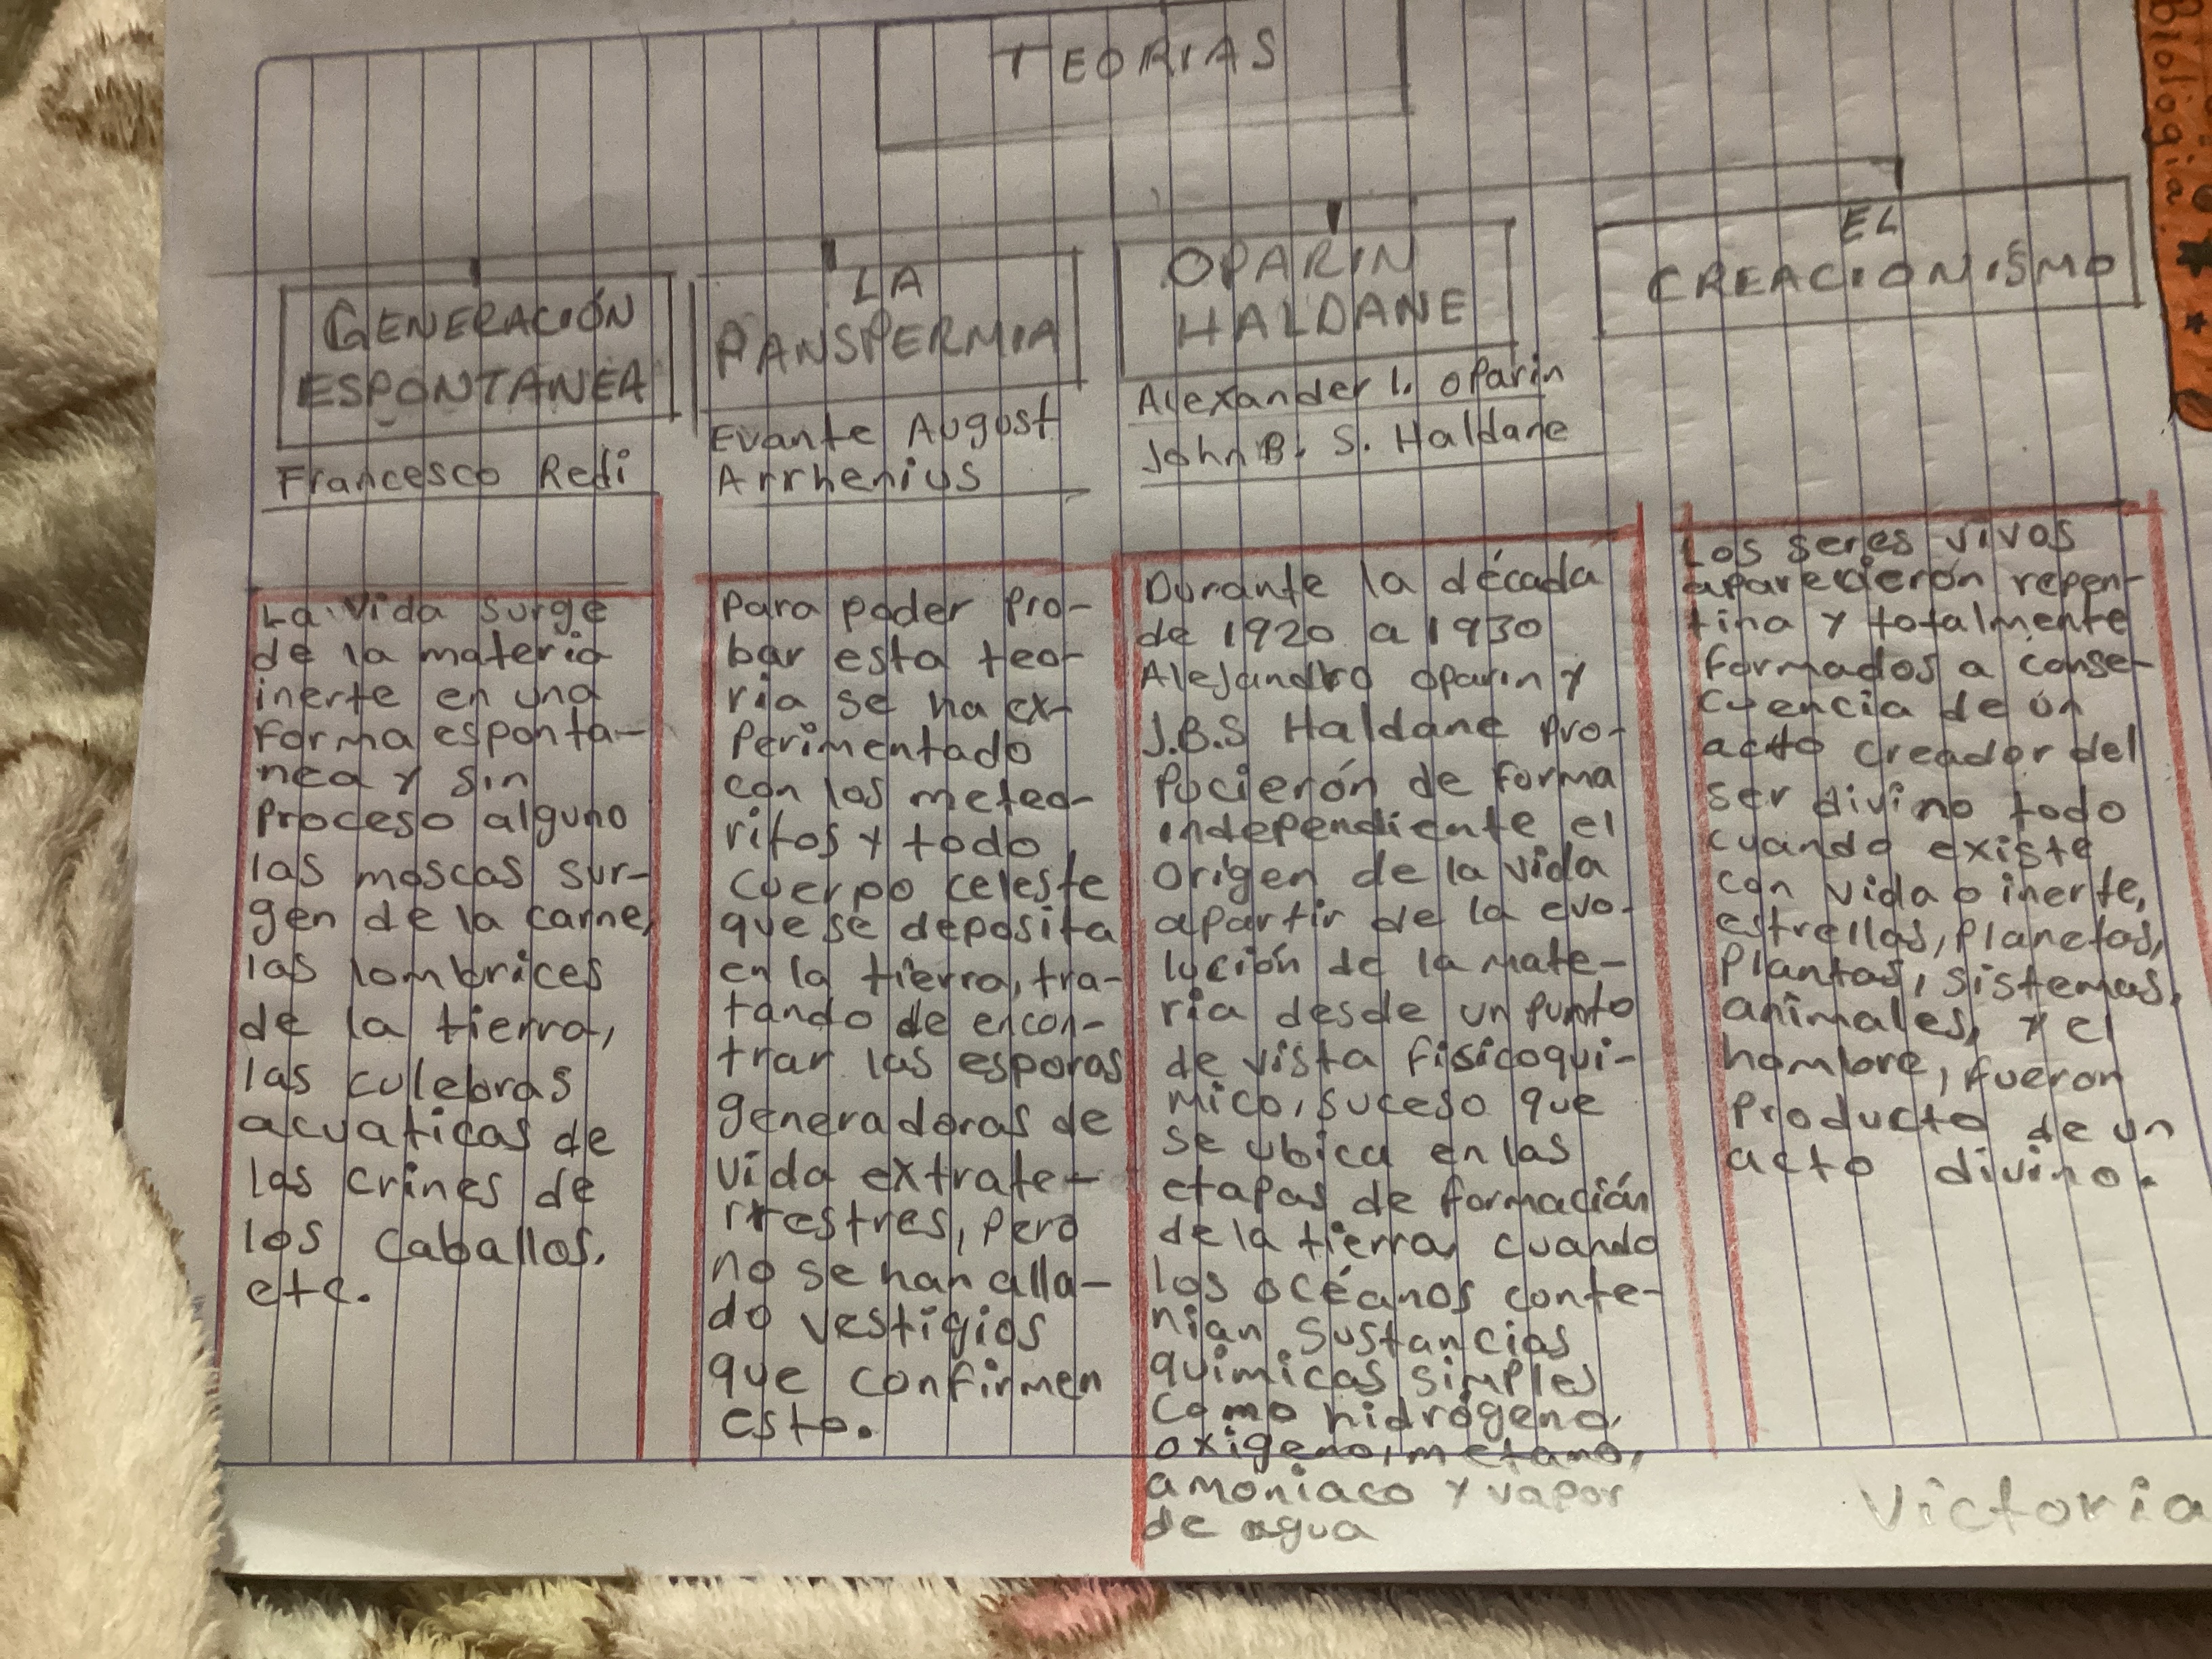 TEORIAS
GENERACIÓN
ESPONTANEA
Francesco Redi
La vida surge
de la materia
inerte en una
forma esponta-
nea y sin
proceso alguno
las moscas sur-
gen de la carne,
las lombrices
de la tierra,
las culebras
acuaticas de
las crines de
los caballos.
etc.
LA
PANSPERMIA
Evante August
Arrhenius
Para poder pro-
bar esta teo-
ria se ha ex-
perimentado
con los meteo-
ritos y todo
cuerpo celeste
que se deposita
en la tierra, tra-
tando de encon-
trar las esporas
generadoras de
vida extrate-
rrestres, pero
no se han alla-
do vestigios
que confirmen
esto.
OPARIN
HALDANE
Alexander I. Oparin
John B. S. Haldane
Durante la década
de 1920 a 1930
Alejandro oparin y
J.B.S Haldane pro-
pucierón de forma
independiente el
origen de la vida
apartir de la evo-
lución de la mate-
ria desde un punto
de vista fisicoqui-
mico, suceso que
se ubica en las
etapas de formación
de la tierra cuando
los océanos conte-
nian sustancias
quimicas simples
como hidrógeno,
oxigeno, metano,
amoniaco y vapor
de agua
EL
CREACIONISMO
Los seres vivos
aparecierón repen-
tina y totalmente
formados a conse-
cuencia de un
acto creador del
ser divino todo
cuando existe
con vida o inerte,
estrellas, planetas,
plantas, sistemas,
animales, y el
hombre, fueron
producto de un
acto divino.
Victoria